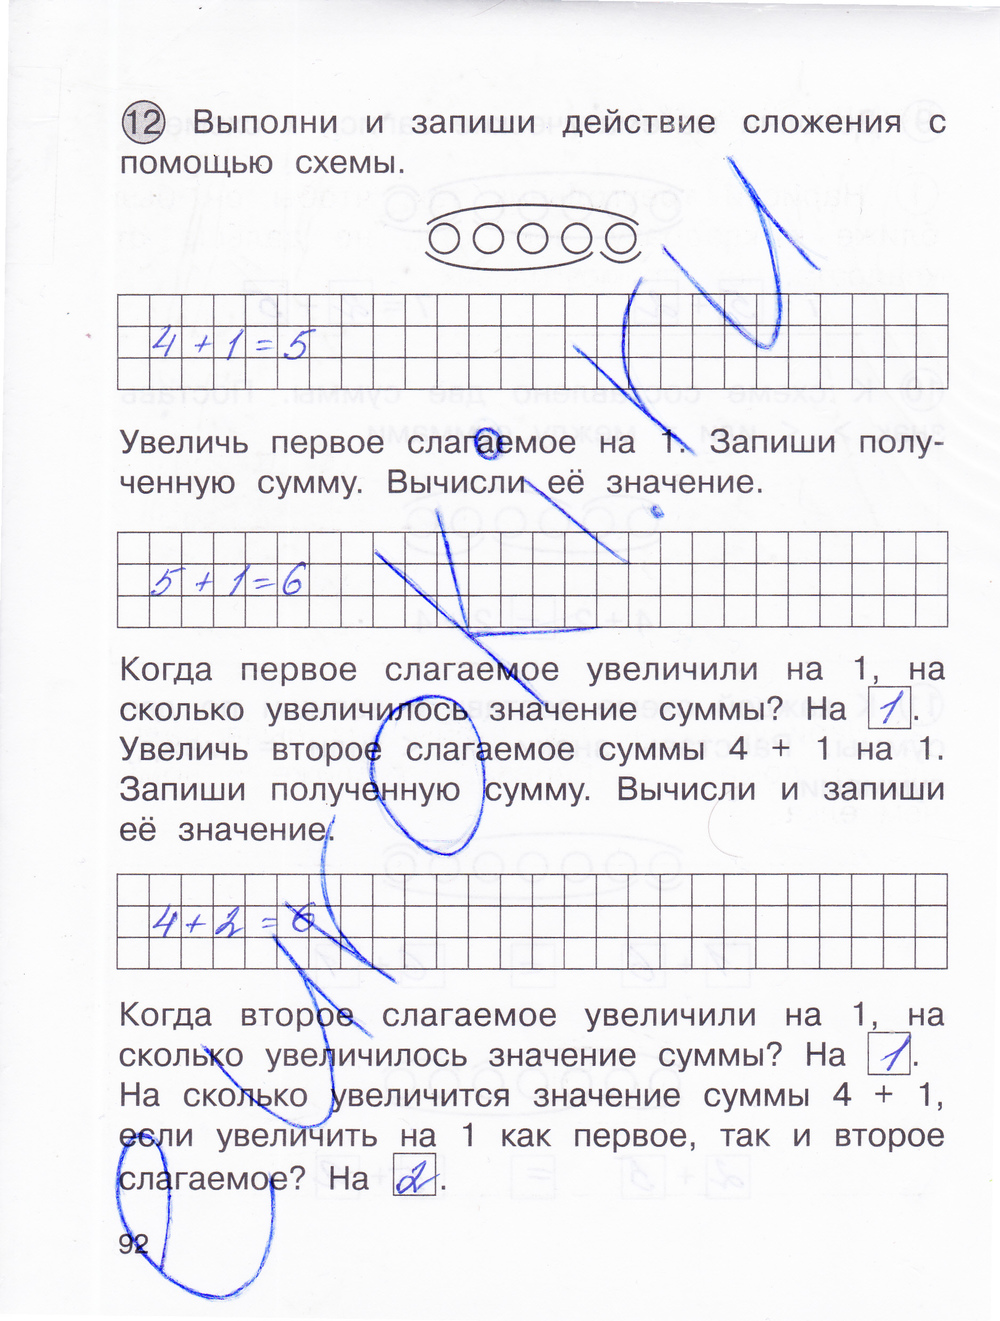 12 Выполни и запиши действие сложения с
помощью схемы.
4 + 1 = 5
Увеличь первое слагаемое на 1. Запиши полу-
ченную сумму. Вычисли её значение.
5 + 1 = 6
Когда первое слагаемое увеличили на 1, на
сколько увеличилось значение суммы? На 1.
Увеличь второе слагаемое суммы 4 + 1 на 1.
Запиши полученную сумму. Вычисли и запиши
её значение.
4 + 2 = 6
Когда второе слагаемое увеличили на 1, на
сколько увеличилось значение суммы? На 1.
На сколько увеличится значение суммы 4 + 1,
если увеличить на 1 как первое, так и второе
слагаемое? На 2.
92